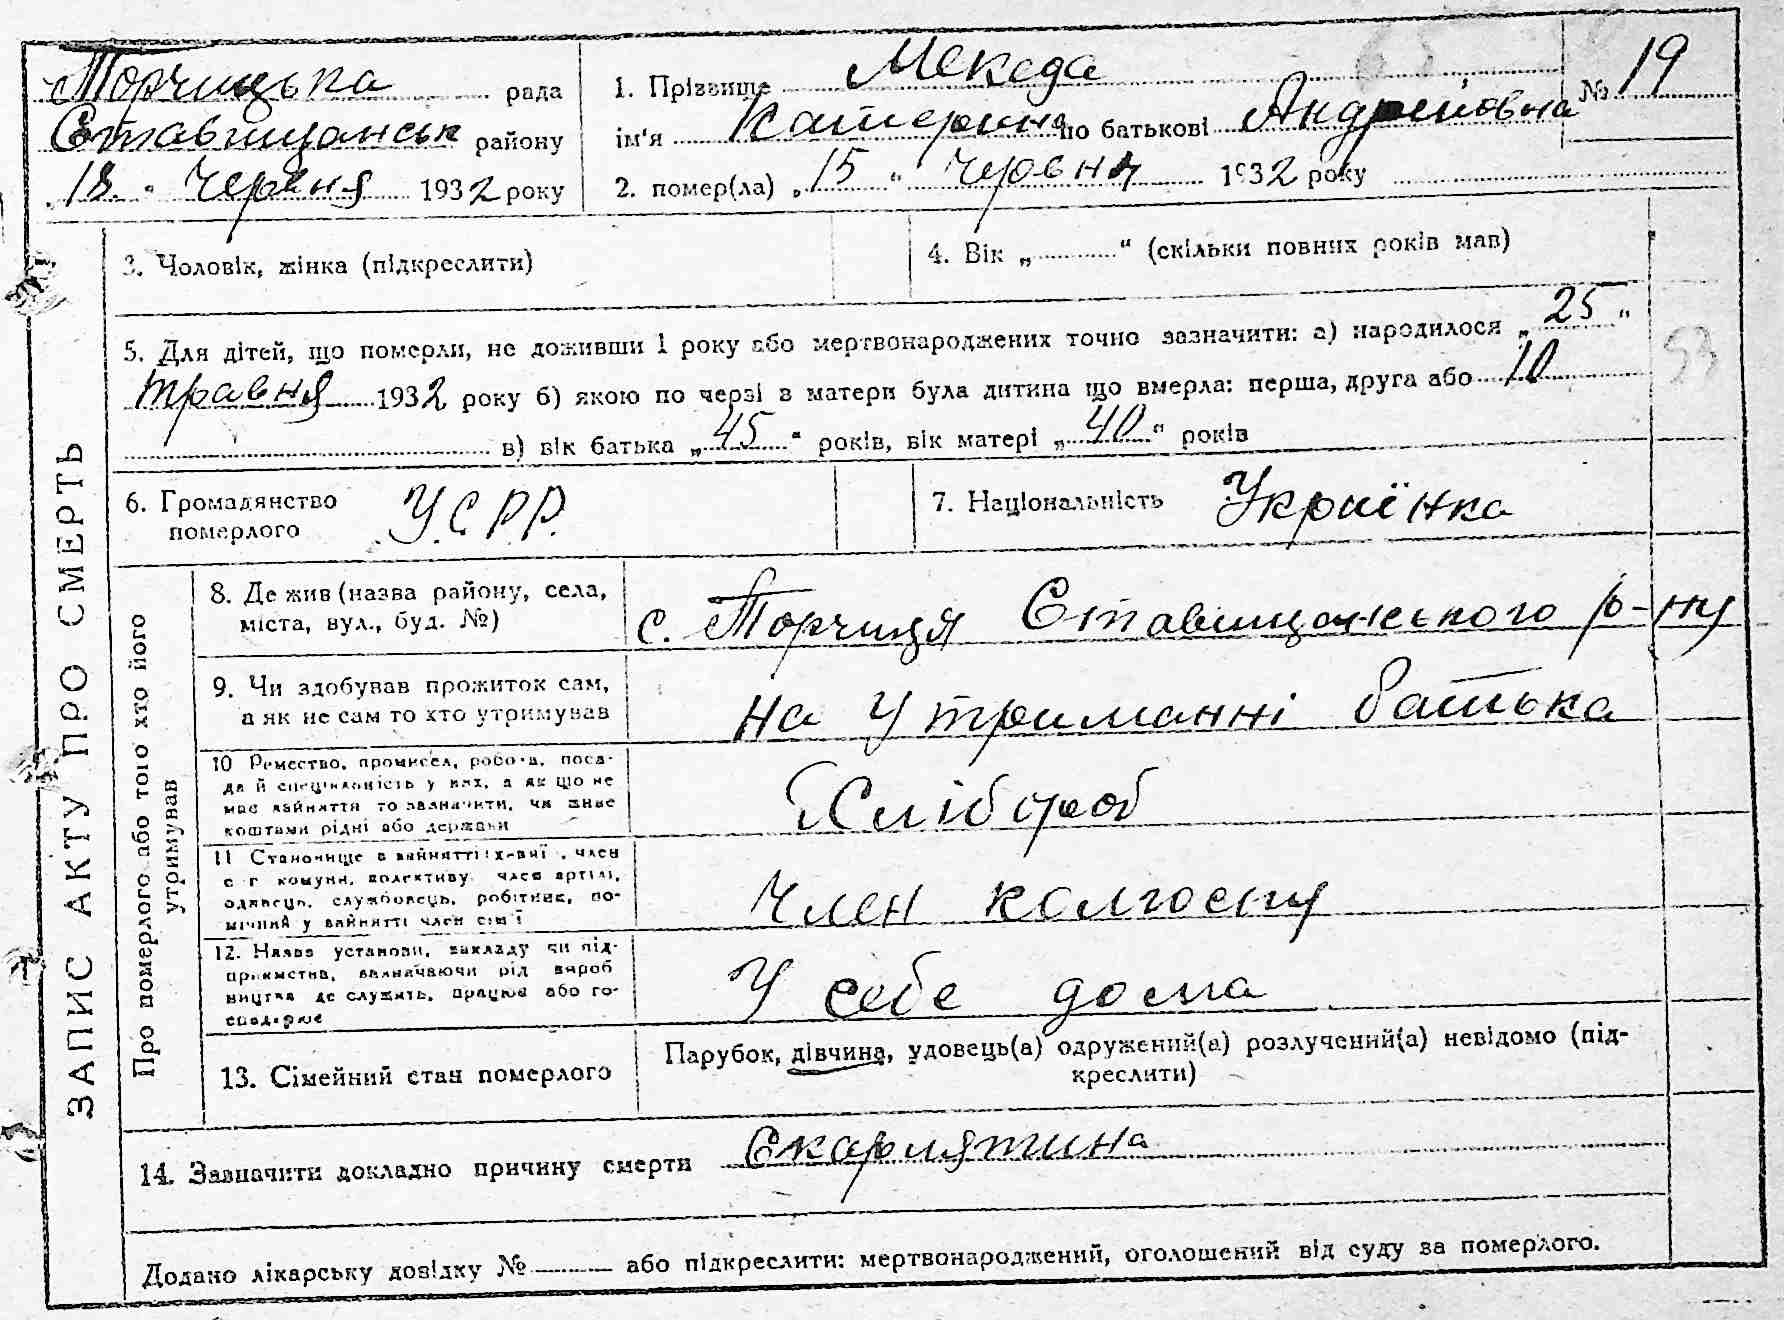 Торчицька рада
Ставищанськ району
„18" Червня 1932 року
1. Прізвище Мекеда
№ 19
ім'я Катерина по батькові Андрейовна
2. помер(ла) „15" Червня 1932 року
ЗАПИС АКТУ ПРО СМЕРТЬ
3. Чоловік, жінка (підкреслити)
4. Вік „............" (скільки повних років мав)
5. Для дітей, що померли, не доживши 1 року або мертвонароджених точно зазначити: а) народилося „25"
травня 1932 року б) якою по черзі в матери була дитина що вмерла: перша, друга або 10
в) вік батька „45" років, вік матері „40" років
53
6. Громадянство
померлого
У.С.Р.Р.
7. Національність Украінка
Про померлого або того хто його
утримував
8. Де жив (назва району, села,
міста, вул., буд. №)
с. Торчиця Ставищанського р-ну
9. Чи здобував прожиток сам,
а як не сам то хто утримував
На утриманні батька
10 Ремество, промисел, робота, поса-
да й спеціальність у них, а як що не
має зайняття то зазначити, чи живе
коштами рідні або держави
Хлібороб
11 Становище в зайнятті: член
с г комуни, колективу член артілі,
одинець, службовець, робітник, по-
мічний у зайнятті член сім'ї
Член колгоспу
12. Назва установи, закладу чи під-
приємства, зазначаючи рід вироб
ництва де служить, працює або го-
сподарює
У себе дома
13. Сімейний стан померлого
Парубок, дівчина, удовець(а) одружений(а) розлучений(а) невідомо (під-
креслити)
14. Зазначити докладно причину смерти Скарлятина
Додано лікарську довідку №——— або підкреслити: мертвонароджений, оголошений від суду за померлого.